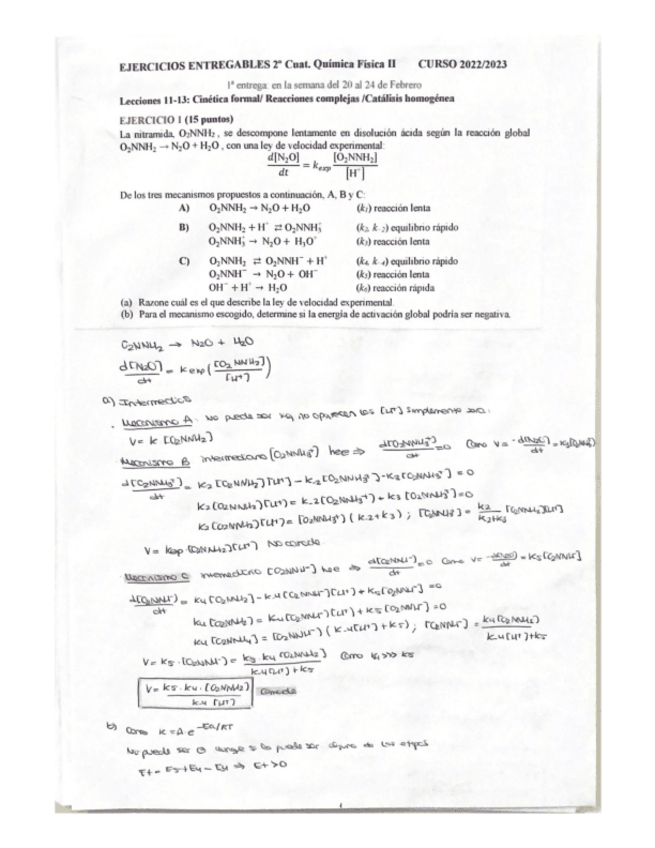 EJERCICIOS ENTREGABLES 2º Cuat. Química Física II CURSO 2022/2023
1ª entrega: en la semana del 20 al 24 de Febrero
Lecciones 11-13: Cinética formal/ Reacciones complejas /Catálisis homogénea
EJERCICIO 1 (15 puntos)
La nitramida, O₂NNH₂, se descompone lentamente en disolución ácida según la reacción global
O₂NNH₂ → N₂O + H₂O, con una ley de velocidad experimental:
d[N₂O]/dt = k_exp [O₂NNH₂]/[H⁺]
De los tres mecanismos propuestos a continuación, A, B y C:
A) O₂NNH₂ → N₂O + H₂O (k₁) reacción lenta
B) O₂NNH₂ + H⁺ ⇄ O₂NNH₃⁺ (k₂, k₋₂) equilibrio rápido
O₂NNH₃⁺ → N₂O + H₃O⁺ (k₃) reacción lenta
C) O₂NNH₂ ⇄ O₂NNH⁻ + H⁺ (k₄, k₋₄) equilibrio rápido
O₂NNH⁻ → N₂O + OH⁻ (k₅) reacción lenta
OH⁻ + H⁺ → H₂O (k₆) reacción rápida
(a) Razone cuál es el que describe la ley de velocidad experimental.
(b) Para el mecanismo escogido, determine si la energía de activación global podría ser negativa.
O₂NNH₂ → N₂O + H₂O
d[N₂O]/dt = k exp([O₂NNH₂]/[H⁺])
a) Intermedios
. Mecanismo A: No puede ser xq no aparecen los [H⁺] simplemente
V = k [O₂NNH₂]
Mecanismo B intermediario [O₂NNH₃⁺] ⇒ d[O₂NNH₃⁺]/dt = 0 Como V =
d[O₂NNH₃⁺]/dt = k₂[O₂NNH₂][H⁺] - k₋₂[O₂NNH₃⁺] - k₃[O₂NNH₃⁺] = 0
k₂[O₂NNH₂][H⁺] = k₋₂[O₂NNH₃⁺] + k₃[O₂NNH₃⁺] = 0
k₂[O₂NNH₂][H⁺] = [O₂NNH₃⁺](k₋₂+k₃) ; [O₂NNH₃⁺] =
V = kexp·[O₂NNH₂][H⁺] No coincide
Mecanismo C intermediario [O₂NNH⁻] ⇒ d[O₂NNH⁻]/dt = 0 Como V = = k₅[O₂NNH⁻]
d[O₂NNH⁻]/dt = k₄[O₂NNH₂] - k₋₄[O₂NNH⁻][H⁺] + k₅[O₂NNH⁻] = 0
k₄[O₂NNH₂] = k₋₄[O₂NNH⁻][H⁺] + k₅[O₂NNH⁻] = 0
k₄[O₂NNH₂] = [O₂NNH⁻](k₋₄[H⁺] + k₅) ; [O₂NNH⁻] = k₄[O₂NNH₂]/k₋₄[H⁺]+k₅
V = k₅·[O₂NNH⁻] = k₅·k₄[O₂NNH₂]/k₋₄[H⁺]+k₅ Como
V = k₅·k₄·[O₂NNH₂]/k₋₄[H⁺] Coincide
b) Como k = A·e^-Ea/RT
No puede ser ⊖ aunque si lo puede ser alguno de las etapas
Et = E₅+E₄-E₋₄ ⇒ Et>0